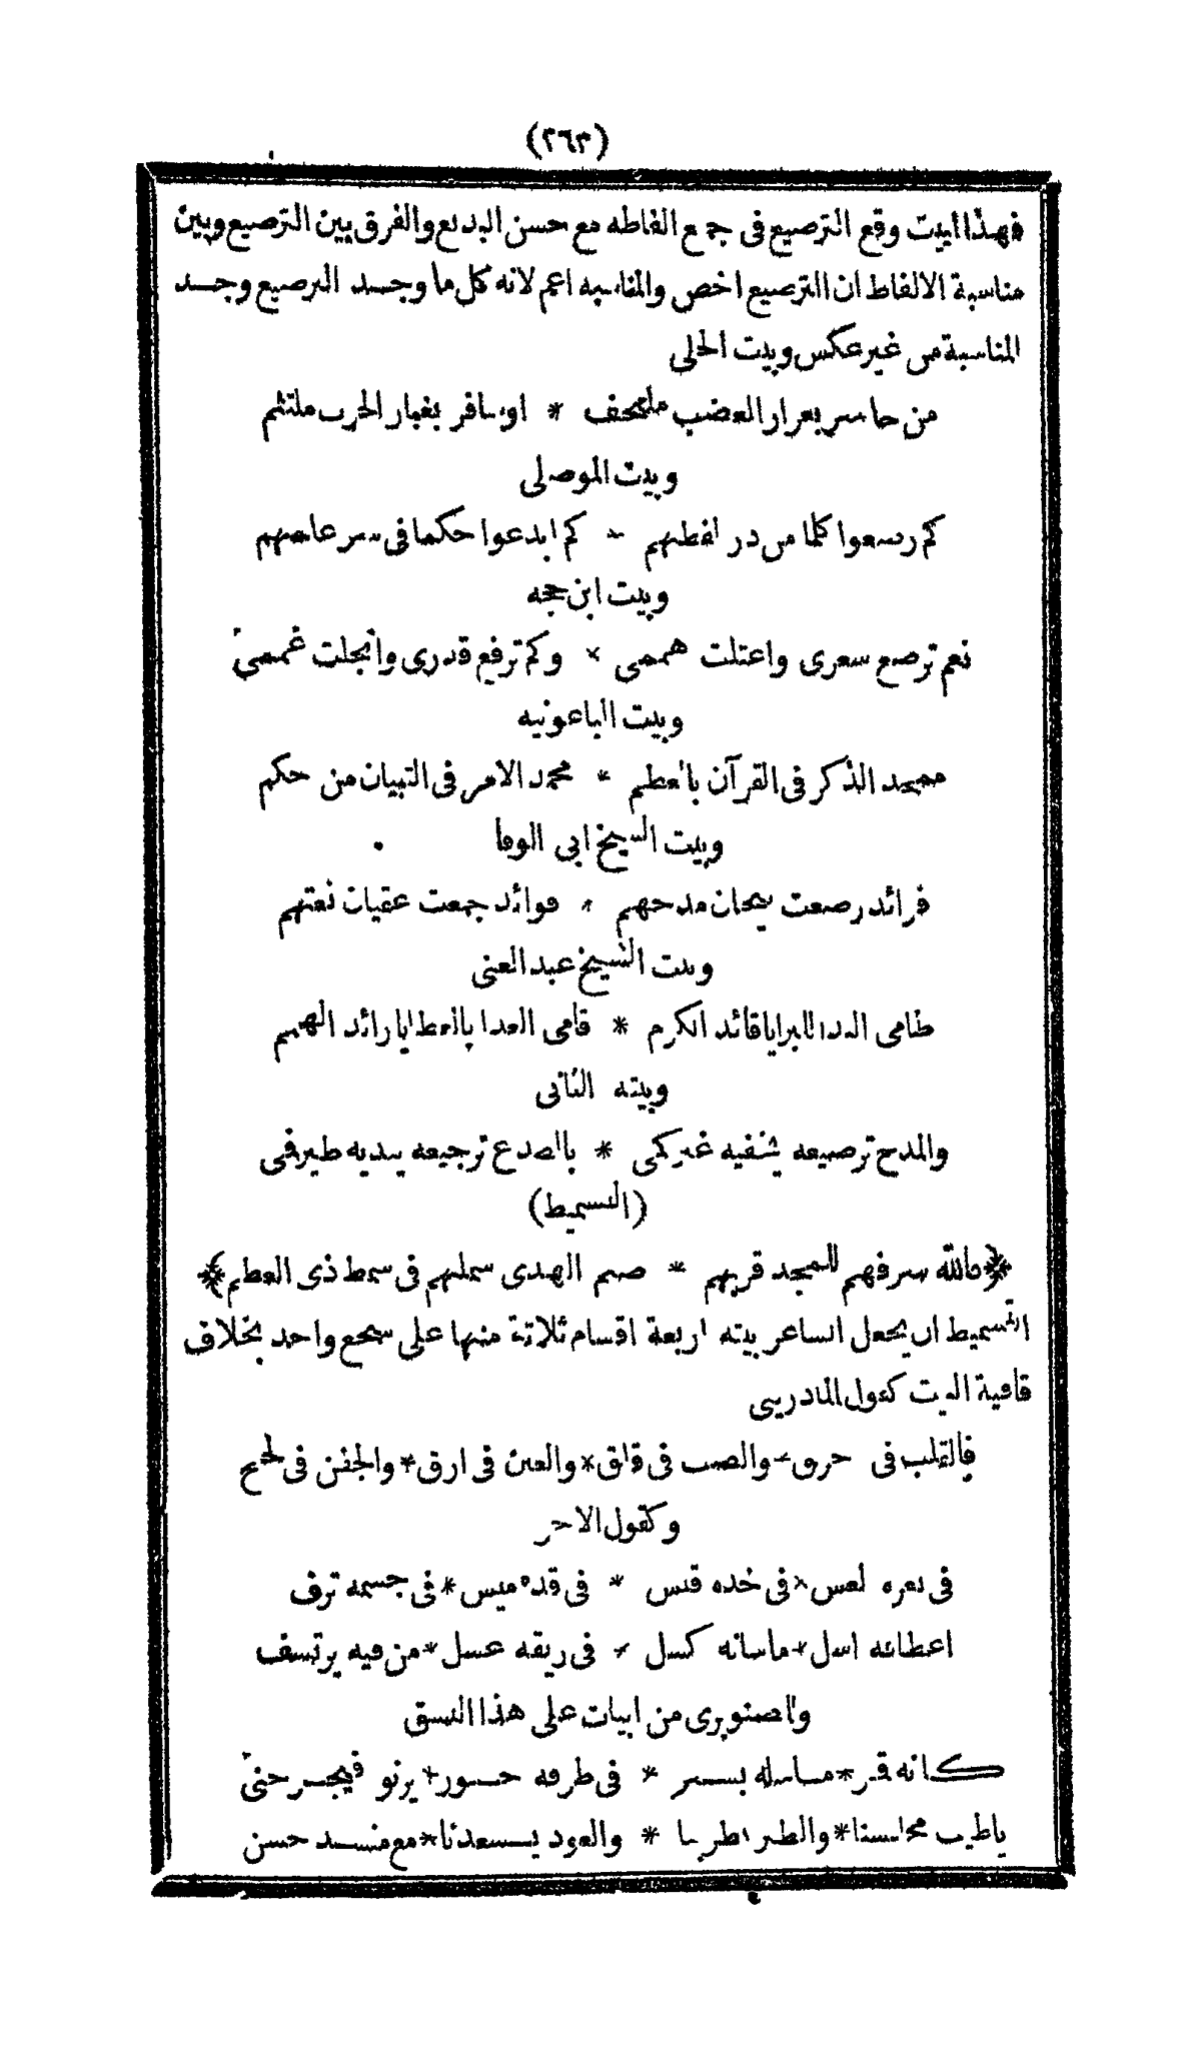 (٢٦٣)
فهذا البيت وقع الترصيع في جمع الفاظه مع حسن البديع والفرق بين الترصيع وبين
مناسبة الالفاظ ان الترصيع اخص والمناسبه اعم لانه كل ما وجد الترصيع وجد
المناسبة من غير عكس وبيت الحلى
من حاسر بعرار العضب ملتحف * اوسافر بغبار الحرب ملتثم
وبيت الموصلى
كم رصعوا كلما من در لفظهم * كم ابدعوا حكما فى سر علمهم
وبيت ابن حجه
نعم ترصع شعرى واعتلت هممى * وكم ترفع قدرى وانجلت غممى
وبيت الباعونيه
ممجد الذكر فى القرآن بالعظم * محمد الامر فى التبيان من حكم
وبيت الشيخ ابى الوفا
فرائد رصعت تيجان مدحهم * فوائد جمعت عقيان نعتهم
وبيت الشيخ عبد الغنى
طامى الندا للبرايا قائد الكرم * قامى العدا بالعطايا رائد الهمم
وبيته الثانى
والمدح ترصيعه يشفيه غير كمى * بالصدع ترجيعه يبديه طير فى
(التسميط)
﴿فالله شرفهم للمجد قربهم * صم الهدى شملهم فى سمط ذى العظم﴾
التسميط ان يجعل الشاعر بيته اربعة اقسام ثلاثة منها على سجع واحد بخلاف
قافية البيت كقول
فالقلب فى حرق * والصب فى قلق * والعين فى ارق * والجفن فى
وكقول الاخر
فى ثغره لعس * فى خده قبس * فى قده ميس * فى جسمه ترف
اعطافه اسل * ماشانه كسل * فى ريقه عسل * من فيه يرتشف
والصنوبرى من ابيات على هذا النسق
كانه قمر * ماسله بشر * فى طرفه حور * يرنو فيجرحنى
ياطيب مجلسنا * والطير اطربنا * والعود يسعدنا * مع منشد حسن